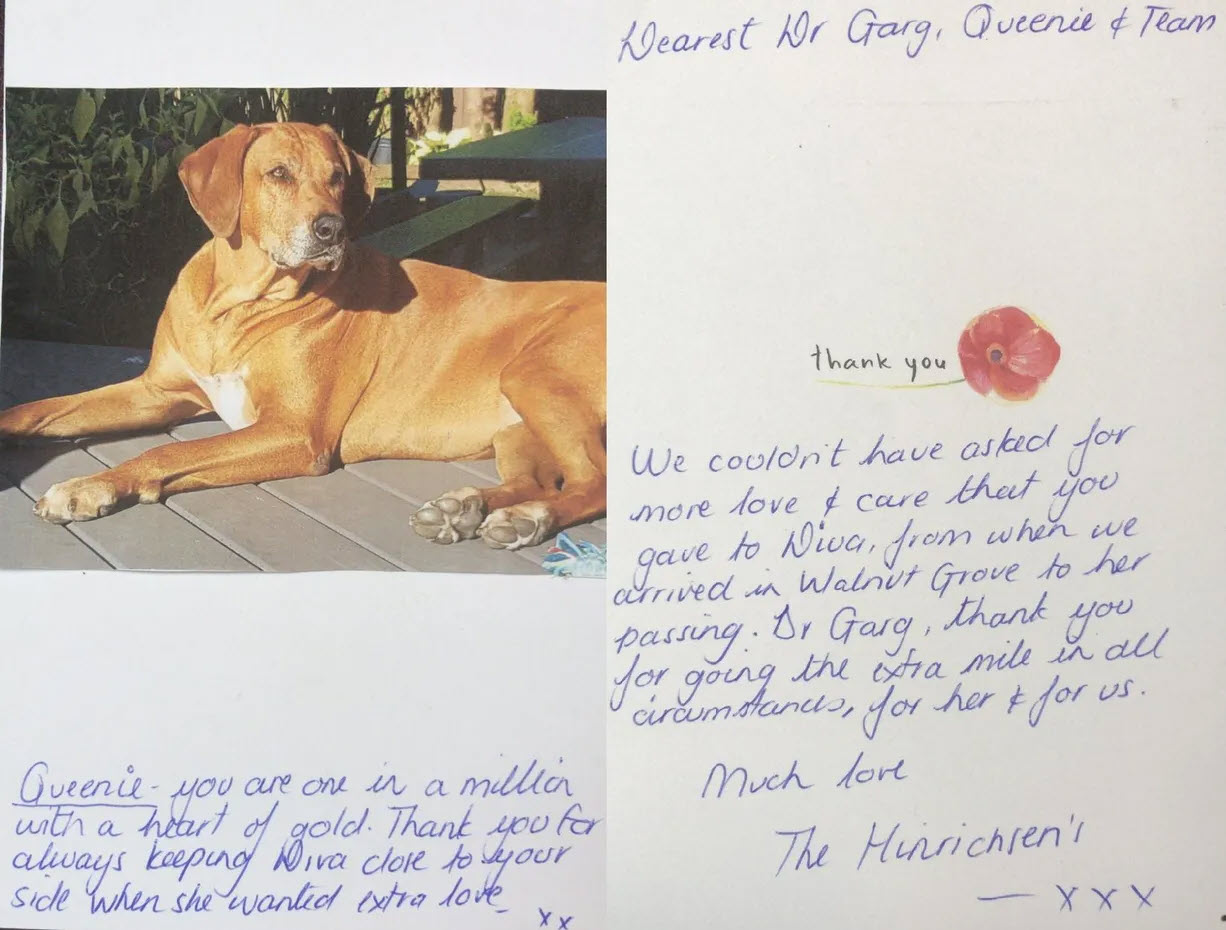 Queenie - you are one in a million
with a heart of gold. Thank you for
always keeping Diva close to your
side when she wanted extra love
xx
Dearest Dr Garg, Queenie & Team
thank you
We couldn't have asked for
more love & care that you
gave to Diva, from when we
arrived in Walnut Grove to her
passing. Dr Garg, thank you
for going the extra mile in all
circumstances, for her & for us.
Much love
The Hinrichsen's
— x x x